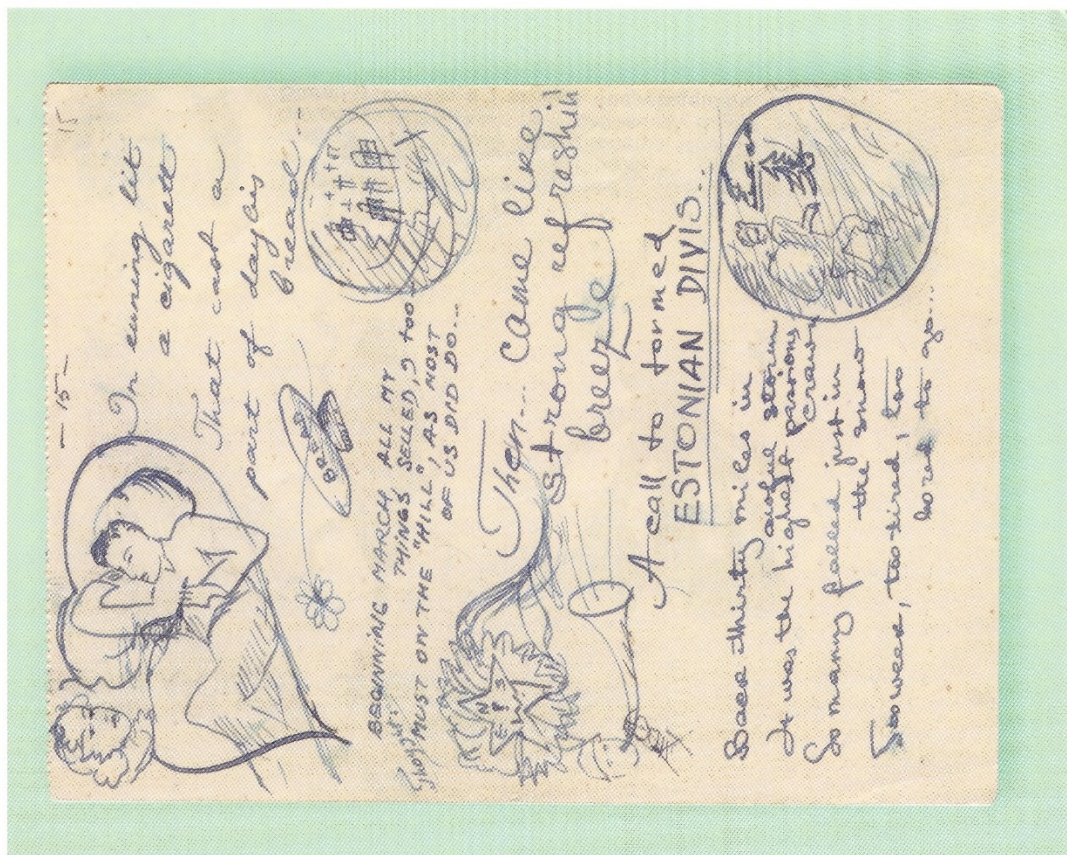 - 15 -
15
In evning lit
a cigarett
That cost a
part of dayis
bread...
BREAD
BEGINNING MARCH ALL MY
THINGS SELLED, I too
thought:
MUST ON THE "HILL", AS MOST
OF US DID DO...
Then... came like
strong refreshin
breeze
NEWS
A call to formed
ESTONIAN DIVIS...
Back thirty miles in
awful storm
It was the highest
So many falled just in
the snow
Too weak, too tired, too
bored to go...